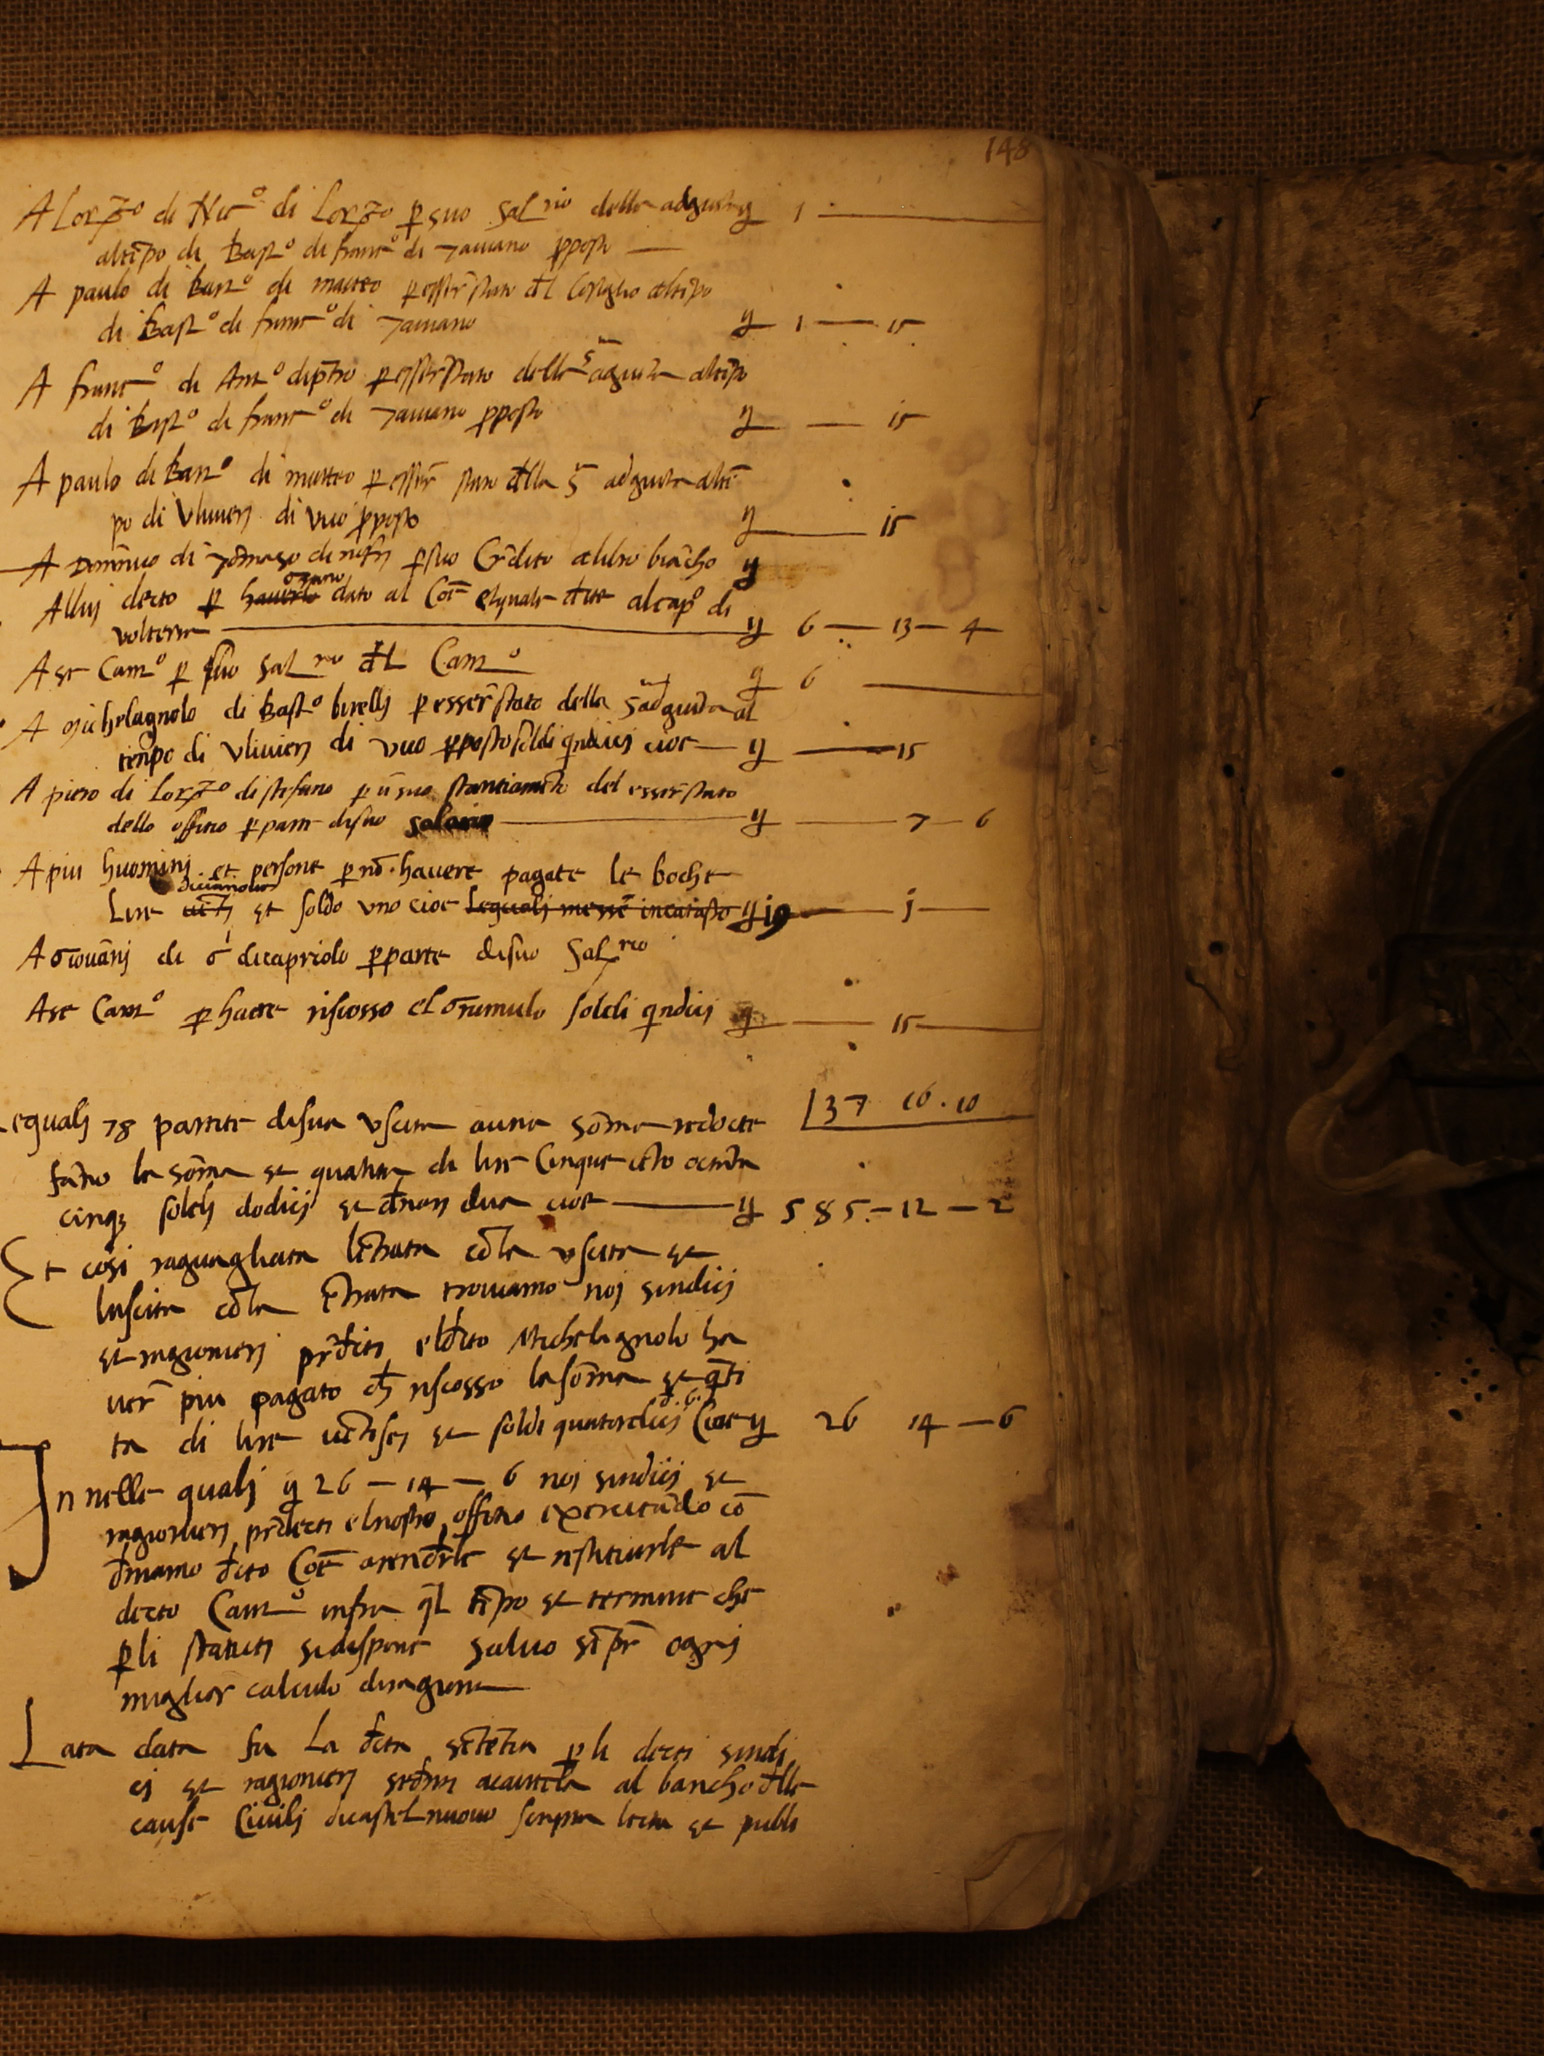 148
A Lorzo di Nico di Lorzo p suo salrio della adgiunta ꝟ 1 —
altēpo di Basto di francco di Taviano pposto —
A paulo di Barto di matteo p esser stato dl Cosiglio altēpo
di Basto di francco di Taviano ꝟ 1 — 15
A francco di Anto di piēro p esser stato della sa agiunta altēpo
di Basto di francco di Taviano pposto ꝟ — 15
A paulo di Barto di matteo p esser stato dlla sa adgiunta altē
po di Ulivieri di Vico pposto ꝟ — 15
A Domēnico di Tōmaso di p suo Crēdito alibro biācho ꝟ
Allui decto p haverlo dato al Coē elquale dive alcapo di
volterra — ꝟ 6 — 13 — 4
A se Camo p suo salrio dl Camo ꝟ 6 —
A Michelagnolo di Basto birelli p esser stato della sa adgiunta al
tenpo di Ulivieri di Vico pposto soldi qndici cioe — ꝟ — 15
A piero di Lorzo di stefano p ū suo stantiamēto del esser stato
dello offitio p parte di suo salario — ꝟ — 7 — 6
A piu huomini et persone p nō havere pagate le boche
Lire diciannove et soldo uno cioe lequali messe incatasto ꝟ 19 — j —
A Giovāni di Gi dicapriolo p parte disuo salrio
A se Camo p havere riscosso el Grumulo soldi qndici ꝟ — 15 —
137 16 . 10
Lequali 78 partite disua uscita auna sōma redocte
fāno la sōma et quatita di lire Cinquecēto octāta
cinq soldi dodici et dnari dua cioe — ꝟ 585 — 12 — 2
Et cosi raguagliata lētrata cōla uscita et
luscita cōla ētrata troviamo noi sindici
et ragionieri prdicti eldicto Michelagnolo ha
ver piu pagato ch riscosso la sōma et qti
ta di lire vētisei et soldi quatordici d 6 Cioe ꝟ 26 14 — 6
Innelle quali ꝟ 26 — 14 — 6 noi sindici et
ragionieri prdecti elnostro offitio exercitādo cō
dnamo dicto Coē arendrle et restituirle al
decto Camo infra ql tēpo et termine che
p li statuti sidispone salvo sēpr ogni
miglior calculo diragione —
Lata data fu La dcta sētētia p li decti sindi
ci et ragionieri sedēti acautela al bancho dlle
cause Civili dicastelnuovo scripta lecta et publi